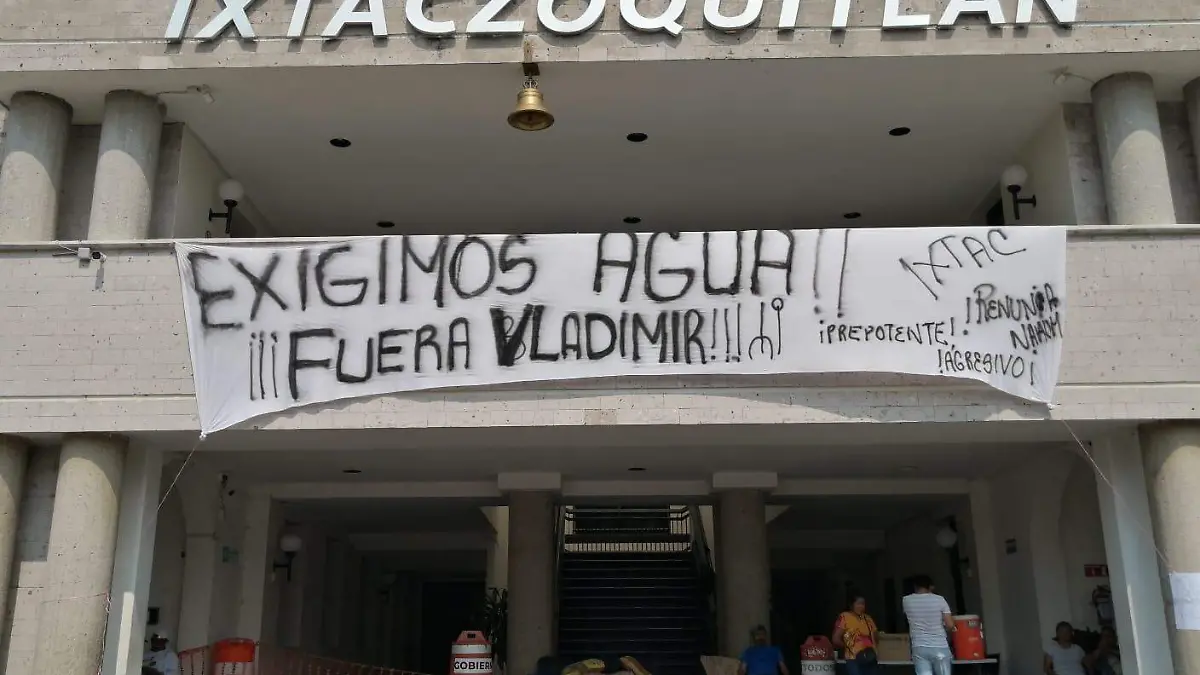 IXTACZOQUITLÁN
EXIGIMOS AGUA!!
¡¡¡FUERA VLADIMIR!!!
IXTAC
¡PREPOTENTE!
¡RENUNCIA
¡AGRESIVO!
GOBIER
TODOS